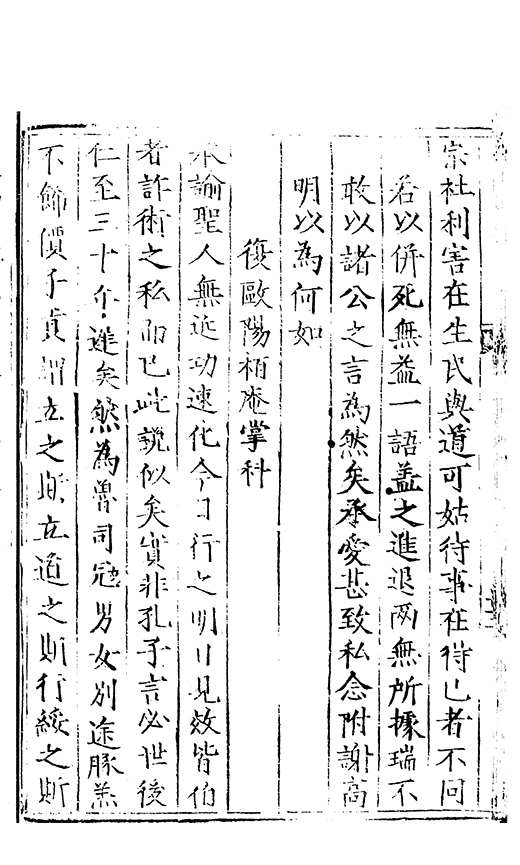 宗社利害在生民與道可姑待事在得已者不同
若以併死無益一語蓋之進退两無所據瑞不
敢以諸公之言為然矣承愛甚致私念附謝高
明以為何如
復歐陽栢庵掌科
承諭聖人無近功速化今日行之明日見效皆伯
者詐術之私而已此說似矣實非孔子言必世後
仁至三十年遲矣然為魯司冦男女別途豚羔
不飾價子貢謂立之斯立道之斯行綏之斯